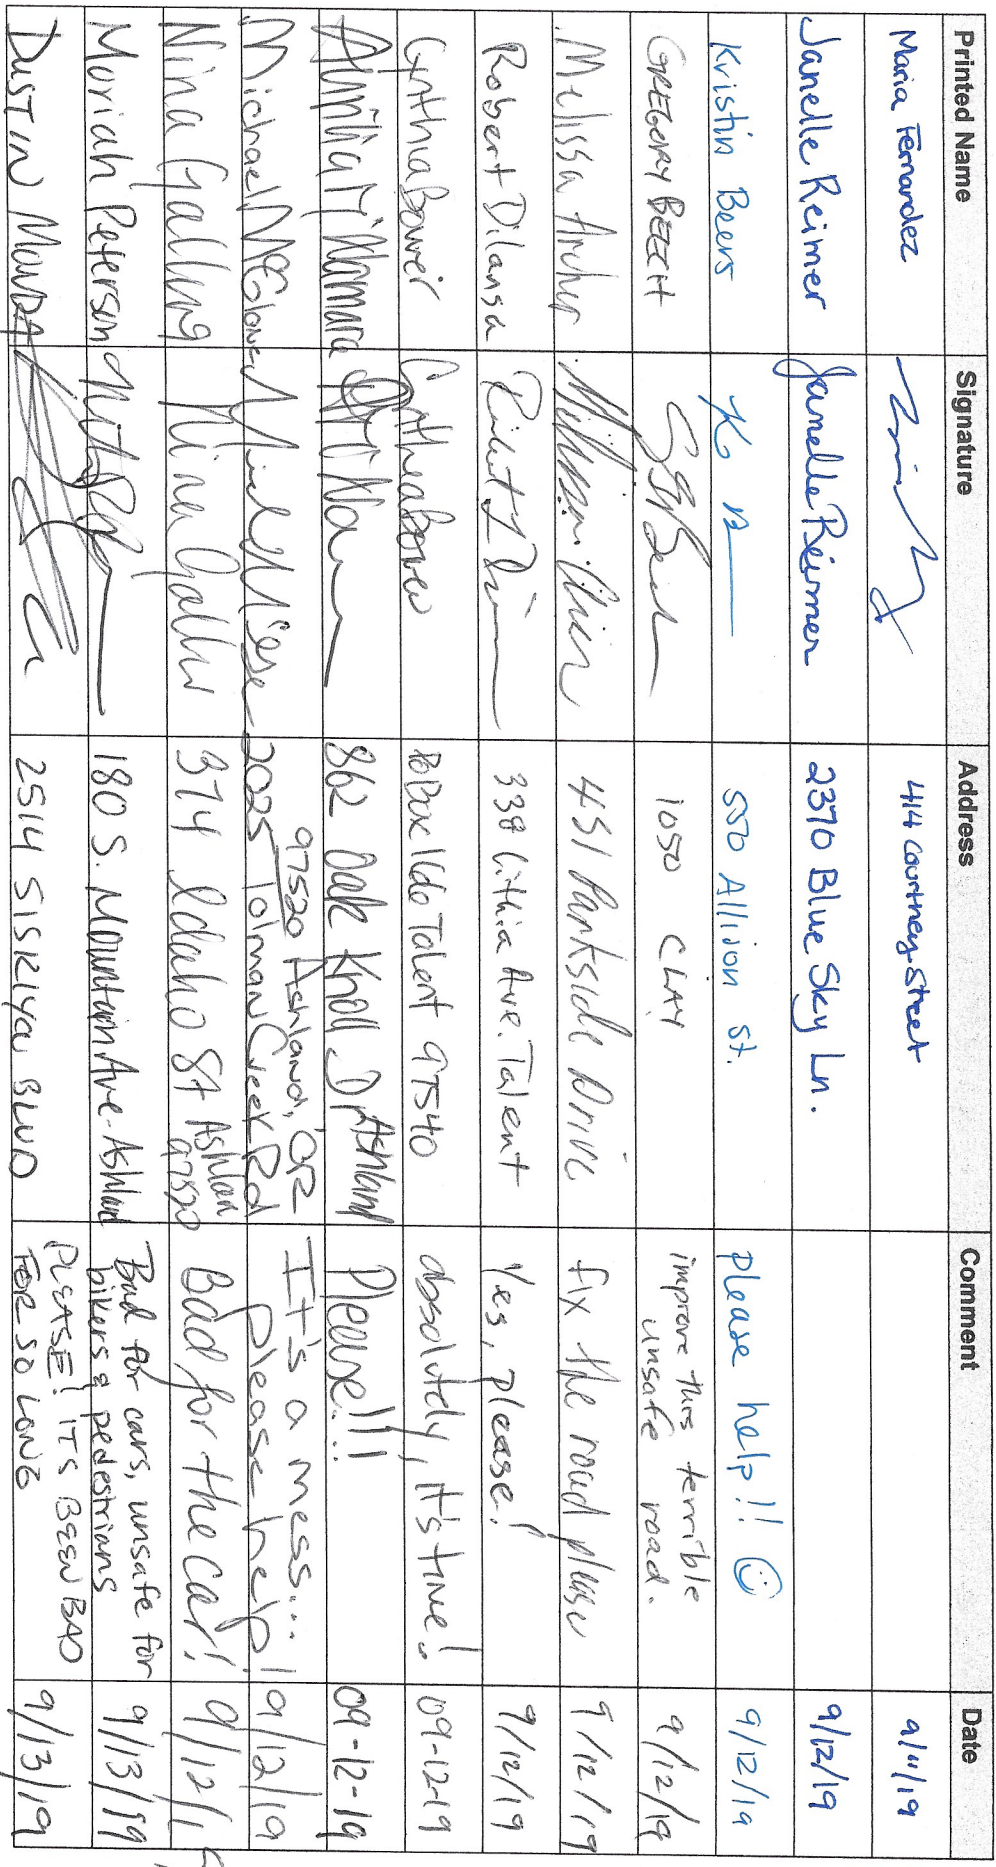 Printed Name Signature Address Comment Date
Maria Fernandez 414 Courtney Street 9/11/19
Janelle Reimer Janelle Reimer 2370 Blue Sky Ln. 9/12/19
Kristin Beers K B 550 Allison St. please help!! ☺ 9/12/19
GREGORY 1050 CLAY improve this terrible unsafe road. 9/12/19
Melissa Archer 451 Parkside Drive fix the road please 9/12/19
Robert Dilansa 338 Lithia Ave. Talent Yes, please! 9/12/19
Cynthia Bower Cynthia Bower PO Box Talent 97540 absolutely, it's time! 09-12-19
862 Oak Knoll Dr Ashland Please!!! 09-12-19
Michael 97520 Ashland, OR
2025 Tolman Creek Rd It's a mess...
please help! 9/12/19
Nina 374 Idaho St Ashlan
97520 Bad for the car! 9/12/1
Moriah Peterson 180 S. Mountain Ave. Ashland Bad for cars, unsafe for
bikers & pedestrians 9/13/19
DUSTIN 2514 SISKIYOU BLVD PLEASE! ITS BEEN BAD
FOR SO LONG 9/13/19